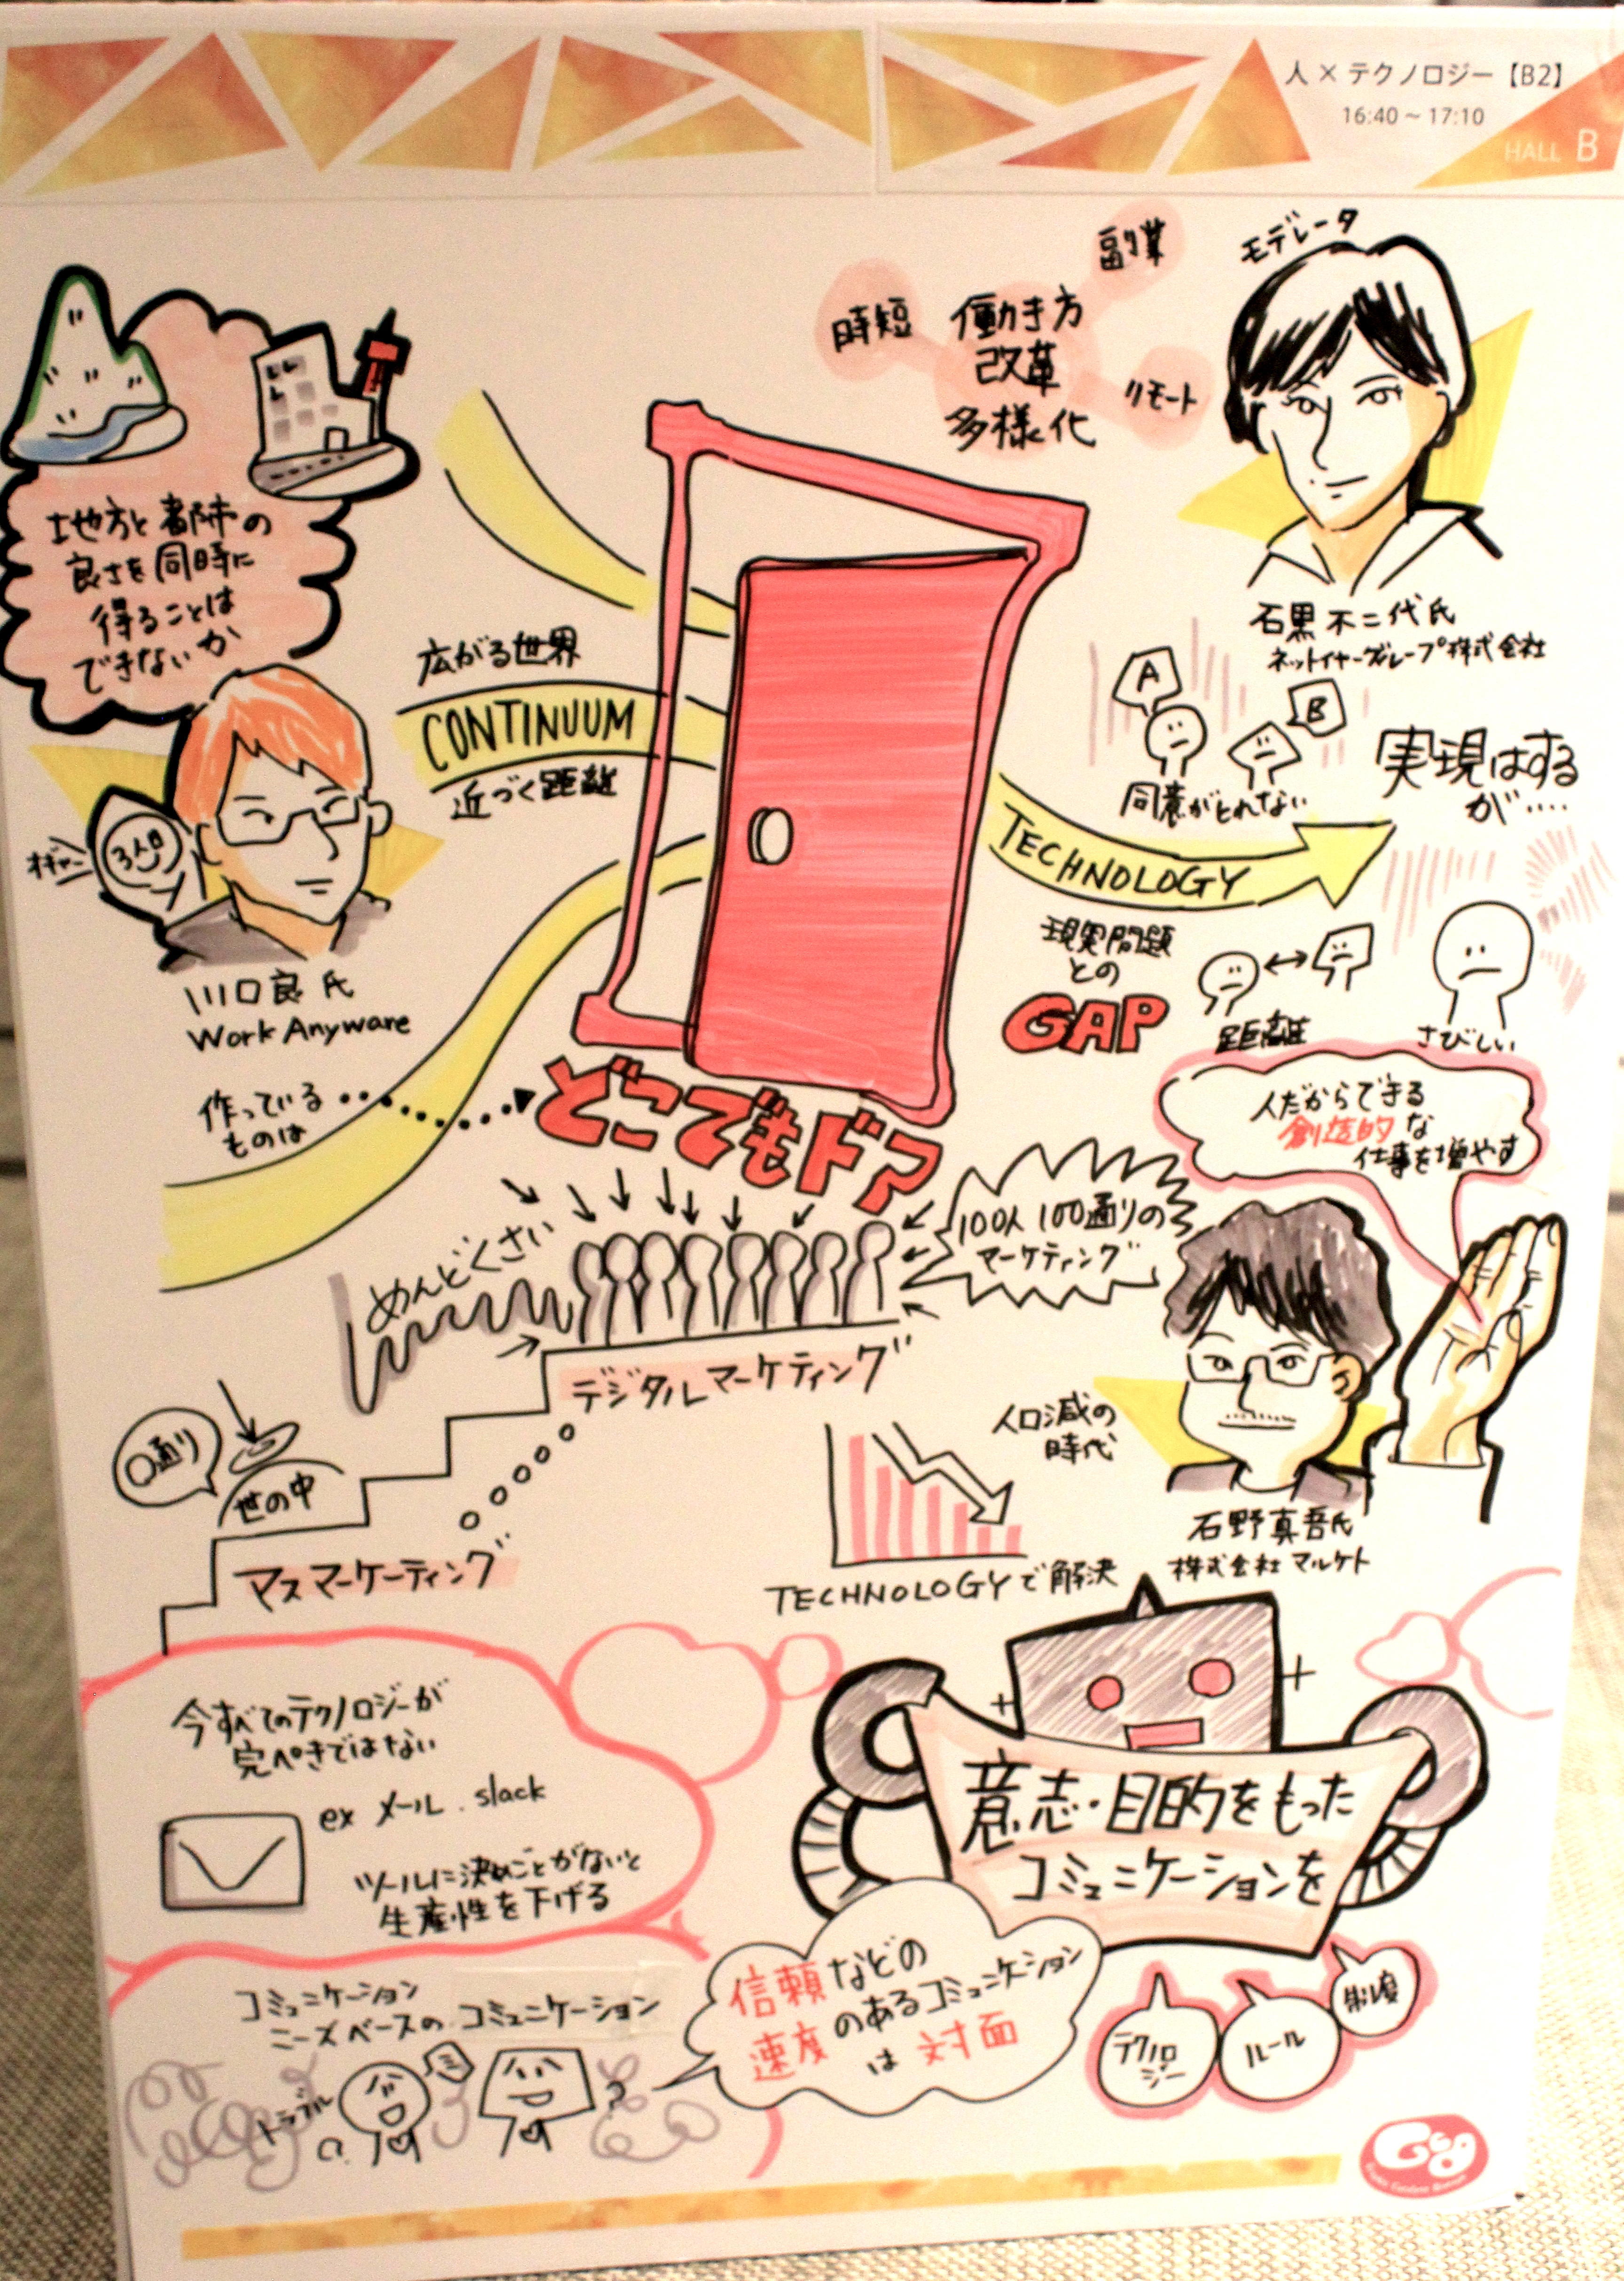 人 × テクノロジー【B2】
16:40 ~ 17:10
HALL B
副業
モデレータ
時短
働き方
改革
多様化
リモート
地方と都市の
良さを同時に
得ることは
できないか
石黒不二代氏
ネットイヤーグループ株式会社
広がる世界
CONTINUUM
近づく距離
A
B
同意がとれない
実現はする
が....
TECHNOLOGY
オギャー
3人目
川口良氏
Work Anyware
現実問題
との
GAP
距離
さびしい
作っている
ものは
どこでもドア
人だからできる
創造的な
仕事を増やす
めんどくさい
100人100通りの
マーケティング
デジタルマーケティング
〇通り
世の中
マスマーケーティング
人口減の
時代
TECHNOLOGYで解決
石野真吾氏
株式会社マルケト
今すべてのテクノロジーが
完ぺきではない
ex メール.slack
ツールに決めごとがないと
生産性を下げる
意志・目的をもった
コミュニケーションを
コミュニケーション
ニーズベースのコミュニケーション
トラブル
?
信頼などの
速度のあるコミュニケーション
は対面
テクノロ
ジー
ルール
制度